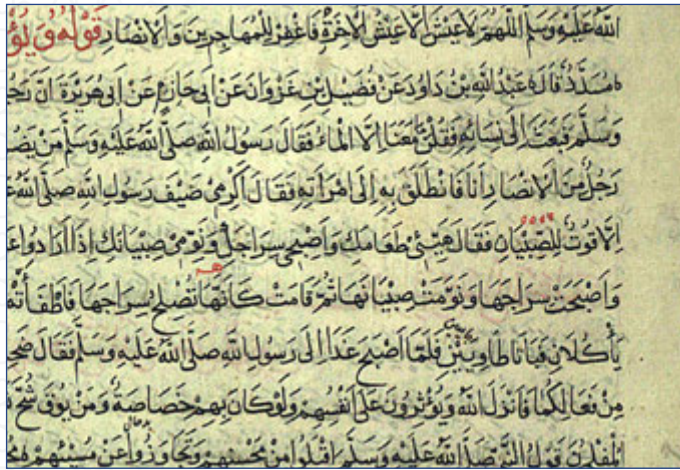 الله عليه وسلم اللهم لا عيش الا عيش الاخرة فاغفر للمهاجرين والانصار قوله ويؤ
مسدد قال عبد الله بن داود عن فضيل بن غزوان عن ابى حازم عن ابى هريرة ان
وسلم فبعث الى نسائه فقلن ما معنا الا الماء فقال رسول الله صلى الله عليه وسلم من يض
رجل من الانصار انا فانطلق به الى امرأته فقال اكرمى ضيف رسول الله صلى الله
الا قوت للصبيان فقال هيئى طعامك واصبحى سراجك ونومى صبيانك اذا ارادوا
واصبحت سراجها ونومت صبيانها ثم قامت كانها تصلح سراجها فاطفأته
يأكلان فباتا طاويين فلما اصبح غدا الى رسول الله صلى الله عليه وسلم فقال
من فعالكما فانزل الله ويؤثرون على انفسهم ولو كان بهم خصاصة ومن يوق شح
المفلحون قول النبى صلى الله عليه وسلم اقبلوا من محسنهم وتجاوزوا عن مسيئهم